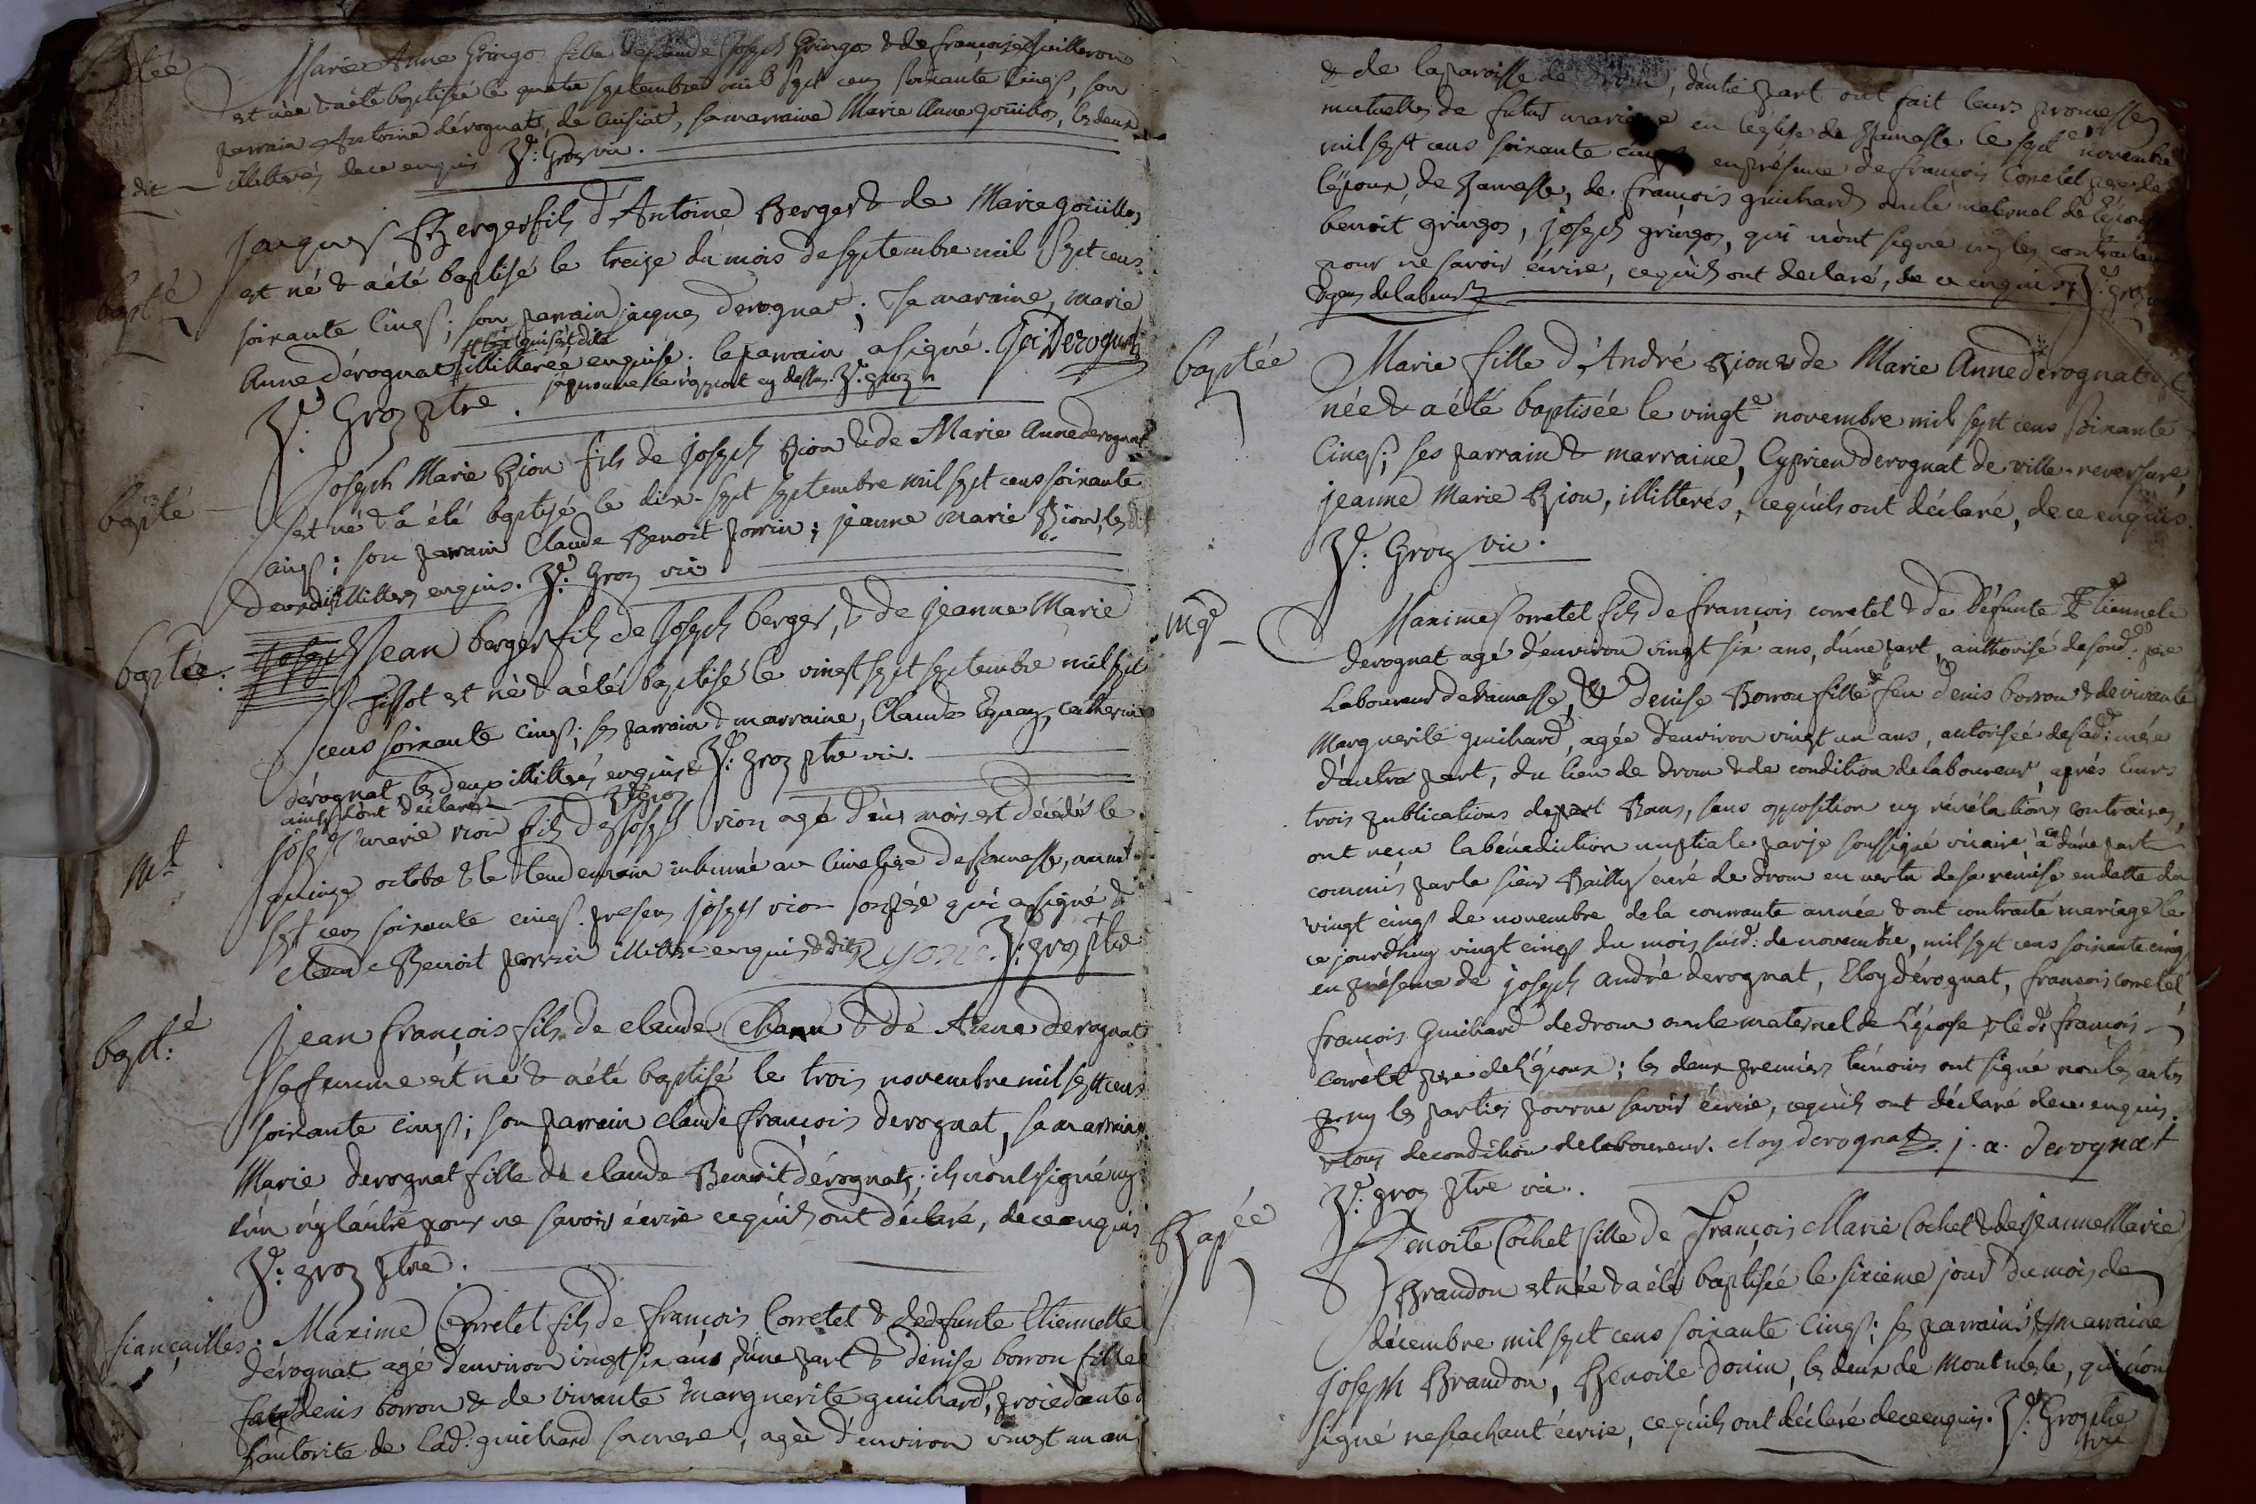 Marie Anne Gringo fille de Claude Joseph Gringos & de françoise Juilleron
est née & a été baptisée le quatre septembre mil sept cens soixante cinq, son
parrain Antoine dérognat, de Cuisiat, sa marraine Marie Anne goüillos, les deux
dit
illiterés de ce enquis P.: Groz vic.
bapté
jacques Berger fils d'Antoine Berger & de Marie goüillos
est né & a été baptisé le treize du mois de septembre mil sept cens
soixante cinq; son parrain jacques derognat; sa maraine, marie
Anne dérognat illiterée enquise. le parrain a signé. Derognat
j'approuve le rapport cy dessus. P. groz
P.: Groz ptre.
bapté
Joseph Marie Rion fils de joseph Rion & de Marie Anne derognat
est né & a été baptisé le dix-sept septembre mil sept cens soixante
cinq; son parrain Claude Benoit perrin; jeanne marie Rion, les d
illiterés enquis. P.: Groz vic.
baptée:
Jean berger fils de Joseph berger, & de jeanne Marie
pissot est né & a été baptisé le vingt sept septembre mil sept
cens soixante cinq; ses parrain & marraine, Claude, Catherine
dérognat les deux illitterés enquis P.: groz ptre vic.
ainsi l'ont déclaré
mt
joseph marie rion fils de joseph rion agé d'un mois est décédé le
quinze octobre & le lendemain inhumé au Cimetière de Ramasse, an mil
sept cens soixante cinq. presens joseph rion son père qui a signé &
claude Benoit perrin illitteré enquis & dit Ryon. P.: groz ptre
bapt:é
Jean françois fils de claude Chanu & de Anna derognat
sa femme est né & a été baptisé le trois novembre mil sept cens
soixante cinq; son parrain claude françois derognat, sa marraine
Marie derognat fille de claude Benoit dérognat; ils n'ont signé ny
l'un ny l'autre pour ne savoir écrire ce qu'ils ont déclaré, de ce enquis
P.: groz ptre.
fiançailles:
Maxime Corretet fils de françois Corretet & de defunte Etiennette
dérognat agé d'environ vingt six ans d'une part & denise borron fille de
feu denis borron & de vivante marguerite guichard, procédante de
l'autorité de lad: guichard sa mere, agée d'environ vingt un an
& de la paroisse de Drom, d'autre part ont fait leurs promesses
mutuelles de futur mariage en l'église de Ramasse le sept novembre
mil sept cens soixante cinq en présence de françois Corretet père de
l'époux, de Ramasse, de françois guichard oncle maternel de l'épouse
benoit gringos, joseph gringos, qui n'ont signé ny les contractans
pour ne savoir écrire, ce qu'ils ont declaré, de ce enquis P. groz
& gens de labeur
baptée
Marie fille d'André Rion & de Marie Anne derognat est
née & a été baptisée le vingt novembre mil sept cens soixante
cinq; ses parrain & marraine, Cyprien derognat de ville-reversure,
jeanne Marie Rion, illitterés, ce qu'ils ont déclaré, de ce enquis.
P.: Groz vic.
mge
Maxime Corretet fils de françois corretet & de défunte Etiennete
derognat agé d'environ vingt six ans, d'une part, authorisé de sond. père
Laboureur de ramasse, & denise Borron fille de feu denis borron & de vivante
Marguerite guichard, agée d'environ vingt un ans, autorisée de sad: mére
d'autre part, du lieu de drom & de condition de laboureur, aprés leurs
trois publications de Bans, sans opposition ny révélation contraires,
ont recu la bénédiction nuptiale par je soussigné vicaire à ce d'une part
commis par le sieur Bailly curé de drom en vertu de sa remise en datte du
vingt cinq de novembre de la courrante année & ont contracté mariage le
ce jourd'huy vingt cinq du mois susd: de novembre, mil sept cens soixante cinq
en présence de joseph andré derognat, Eloy dérognat, françois corretet
françois Guichard de drom oncle maternel de l'épouse & led: françois
corretet père de l'époux; les deux premiers témoins ont signé non les autres
ny les parties pour ne savoir écrire, ce qu'ils ont déclaré de ce enquis.
& tous de condition de laboureur. eloy derognat. j. a. derognat
P.: groz ptre vic.
Bapée
Benoite Cochet fille de françois Marie Cochet & de Jeanne Marie
Brandon est née & a été baptisée le sixieme jour du mois de
décembre mil sept cens soixante cinq; ses parrain & marraine
joseph Brandon, Benoite donin, les deux de Montmerle, qui n'ont
signé ne sachant écrire, ce qu'ils ont déclaré de ce enquis. P. Groz ptre
vic